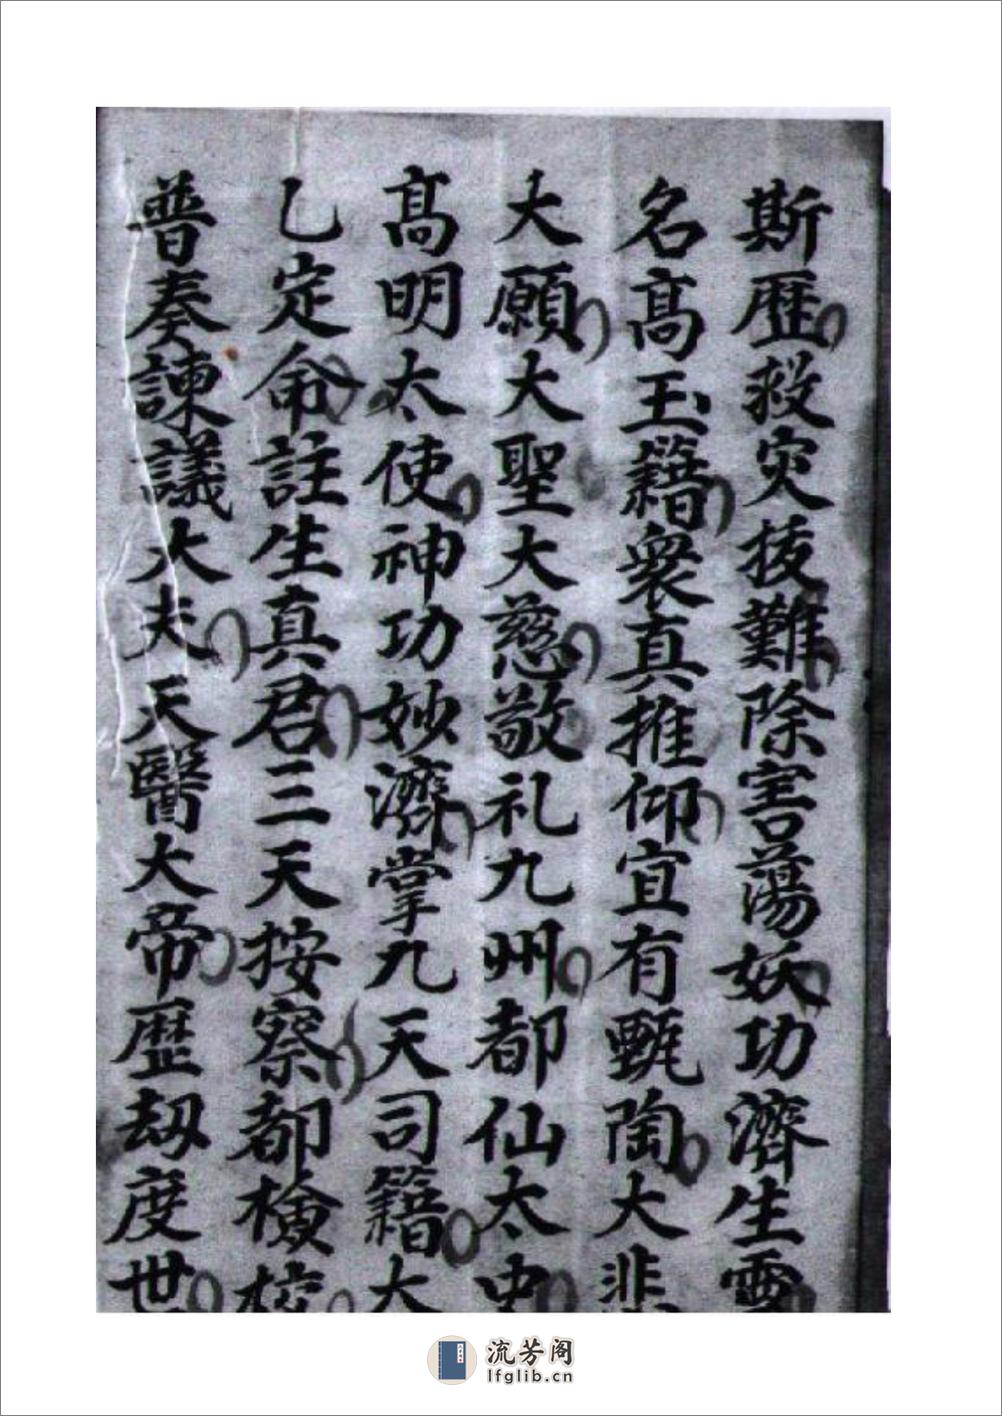 斯歴救灾拔難除害蕩妖功濟生靈
名髙玉籍衆真推仰宜有甄陶大悲
大願大聖大慈敬礼九州都仙太史
髙明太使神功妙濟掌九天司籍大
乙定命註生真君三天按察都檢校
普奏諫議大夫天醫大帝歴劫度世
流芳阁
lfglib.cn